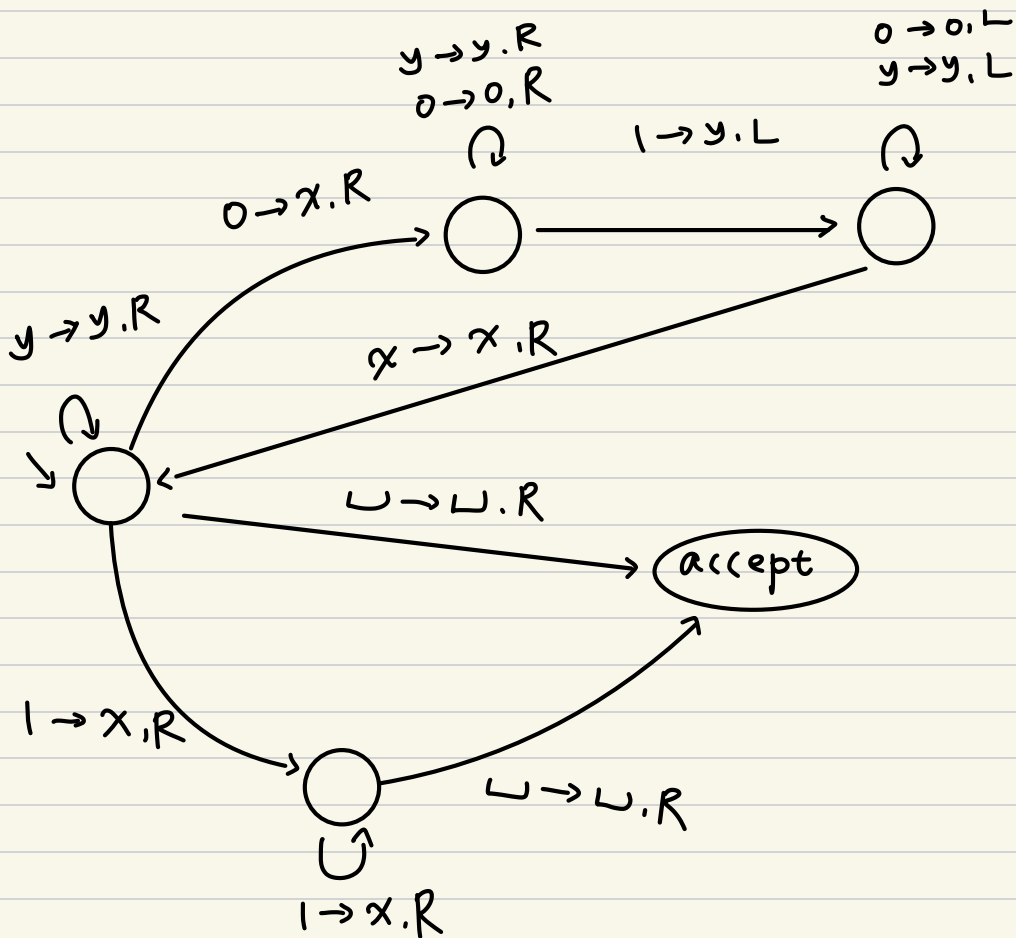 y → y.R
0 → 0,R
0 → 0,L
y → y,L
1 → y.L
0 → x.R
y → y.R
x → x.R
⊔ → ⊔.R
accept
1 → x,R
⊔ → ⊔.R
1 → x.R